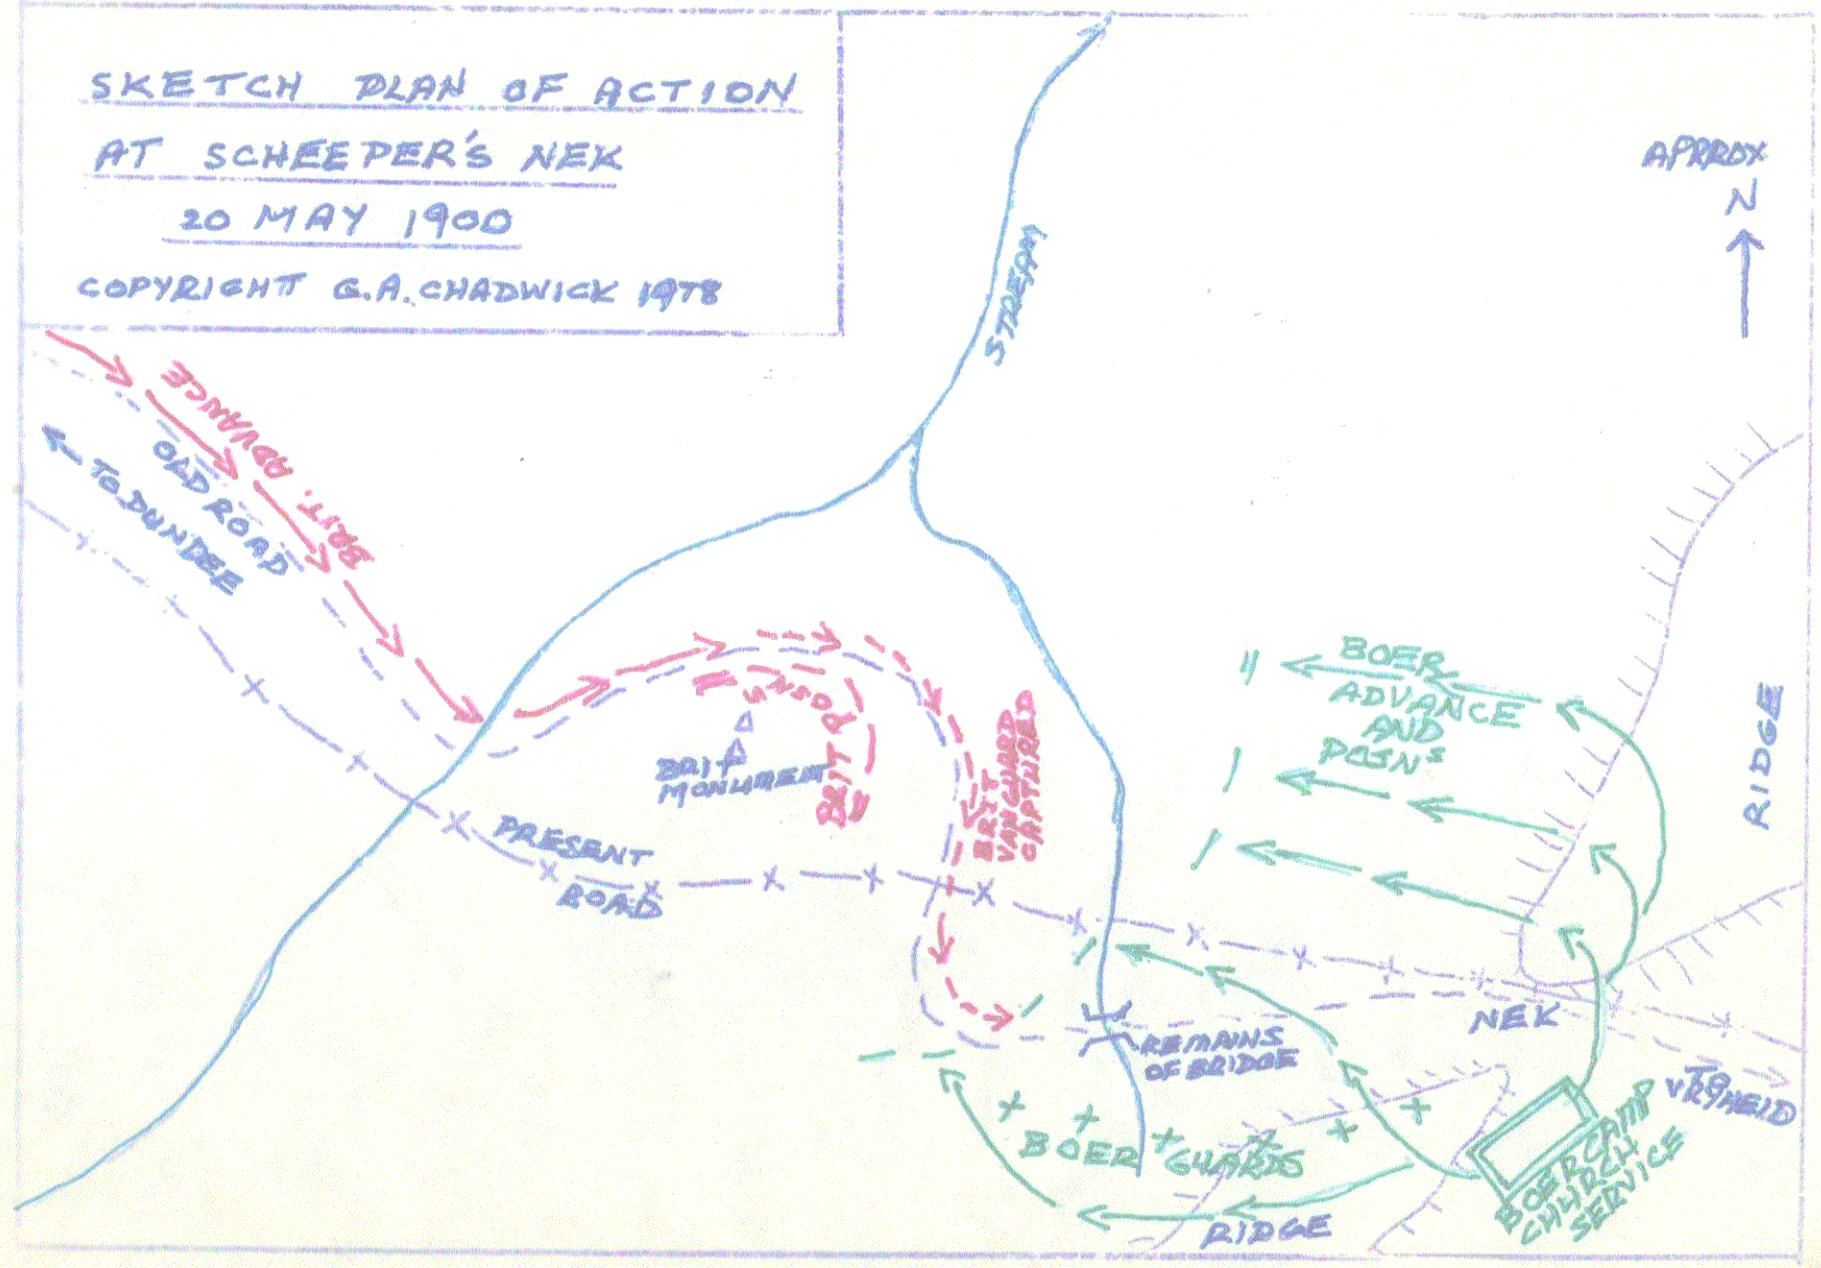 SKETCH PLAN OF ACTION
AT SCHEEPER'S NEK
20 MAY 1900
COPYRIGHT G.A. CHADWICK 1978
APRROX
N
STREAM
BRIT. ADVANCE
OLD ROAD
TO DUNDEE
BRIT POSNS
BRIT
MONUMENT
BRIT
VANGUARD
CAPTURED
PRESENT
ROAD
BOER
ADVANCE
AND
POSNS
RIDGE
NEK
REMAINS
OF BRIDGE
TO
VRYHEID
BOER GUARDS
BOER CAMP
CHURCH
SERVICE
RIDGE